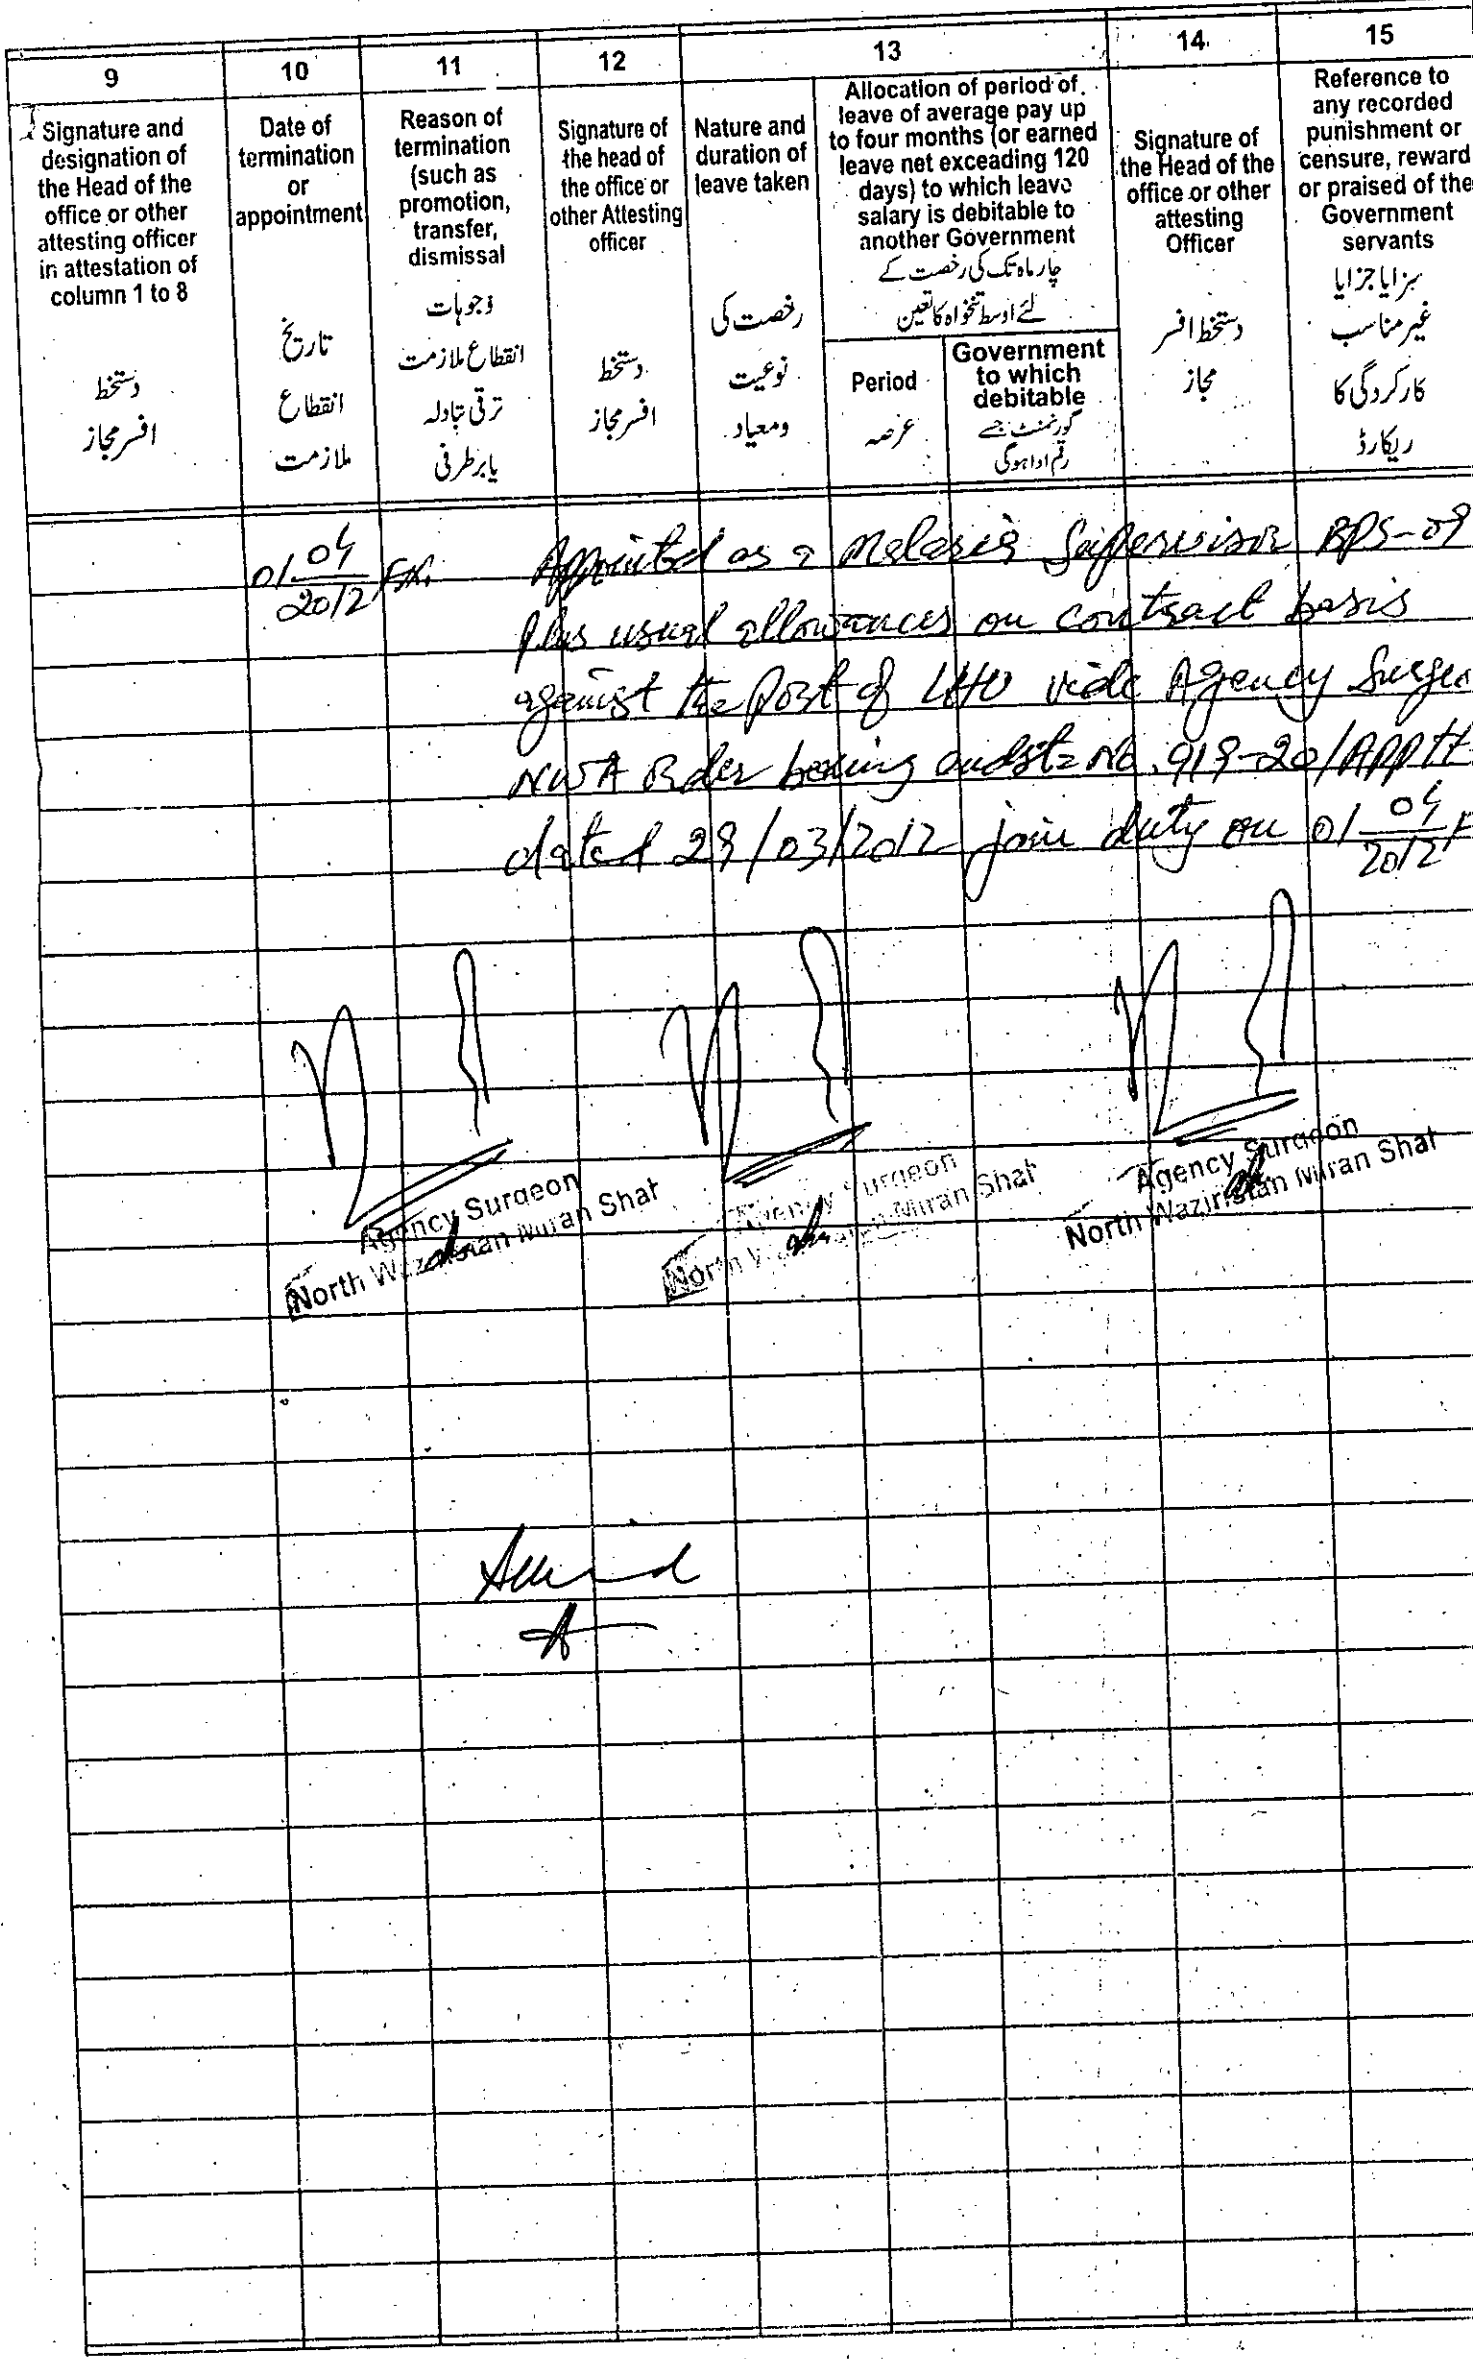 9
Signature and
designation of
the Head of the
office or other
attesting officer
in attestation of
column 1 to 8
دستخط
افسر مجاز
10
Date of
termination
or
appointment
تاریخ
انقطاع
ملازمت
11
Reason of
termination
(such as
promotion,
transfer,
dismissal
وجوہات
انقطاع ملازمت
ترقی تبادلہ
یا برطرفی
12
Signature of
the head of
the office or
other Attesting
officer
دستخط
افسر مجاز
13
Nature and
duration of
leave taken
رخصت کی
نوعیت
ومعیاد
Allocation of period of
leave of average pay up
to four months (or earned
leave net exceading 120
days) to which leave
salary is debitable to
another Government
چار ماہ تک کی رخصت کے
لئے اوسط تنخواہ کا تعین
Period
عرصہ
Government
to which
debitable
گورنمنٹ جسے
رقم ادا ہوگی
14
Signature of
the Head of the
office or other
attesting
Officer
دستخط افسر
مجاز
15
Reference to
any recorded
punishment or
censure, reward
or praised of the
Government
servants
سزا یا جزا یا
غیر مناسب
کارکردگی کا
ریکارڈ
01/04/2012 F.N. Appointed as a Malaria Supervisor BPS-09
plus usual allowances on contract basis
against the post of LHO vide Agency Surgeo
NWA Order bearing endst: No. 919-20/APPTT
dated 29/03/2012 join duty on 01/04/2012 F
Agency Surgeon
North Waziristan Miran Shah
Agency Surgeon
North Miran Shah
Agency Surgeon
North Waziristan Miran Shah
Attested